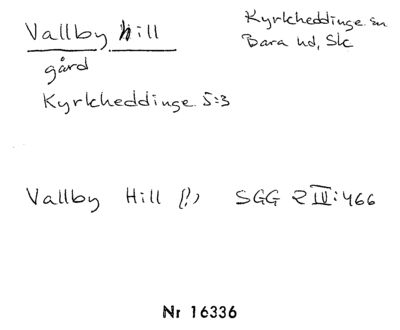 Vallby hill
Kyrkheddinge sn
Bara hd, Sk
gård
Kyrkheddinge 5:3
Vallby Hill (!) SGG 2 IV:466
Nr 16336